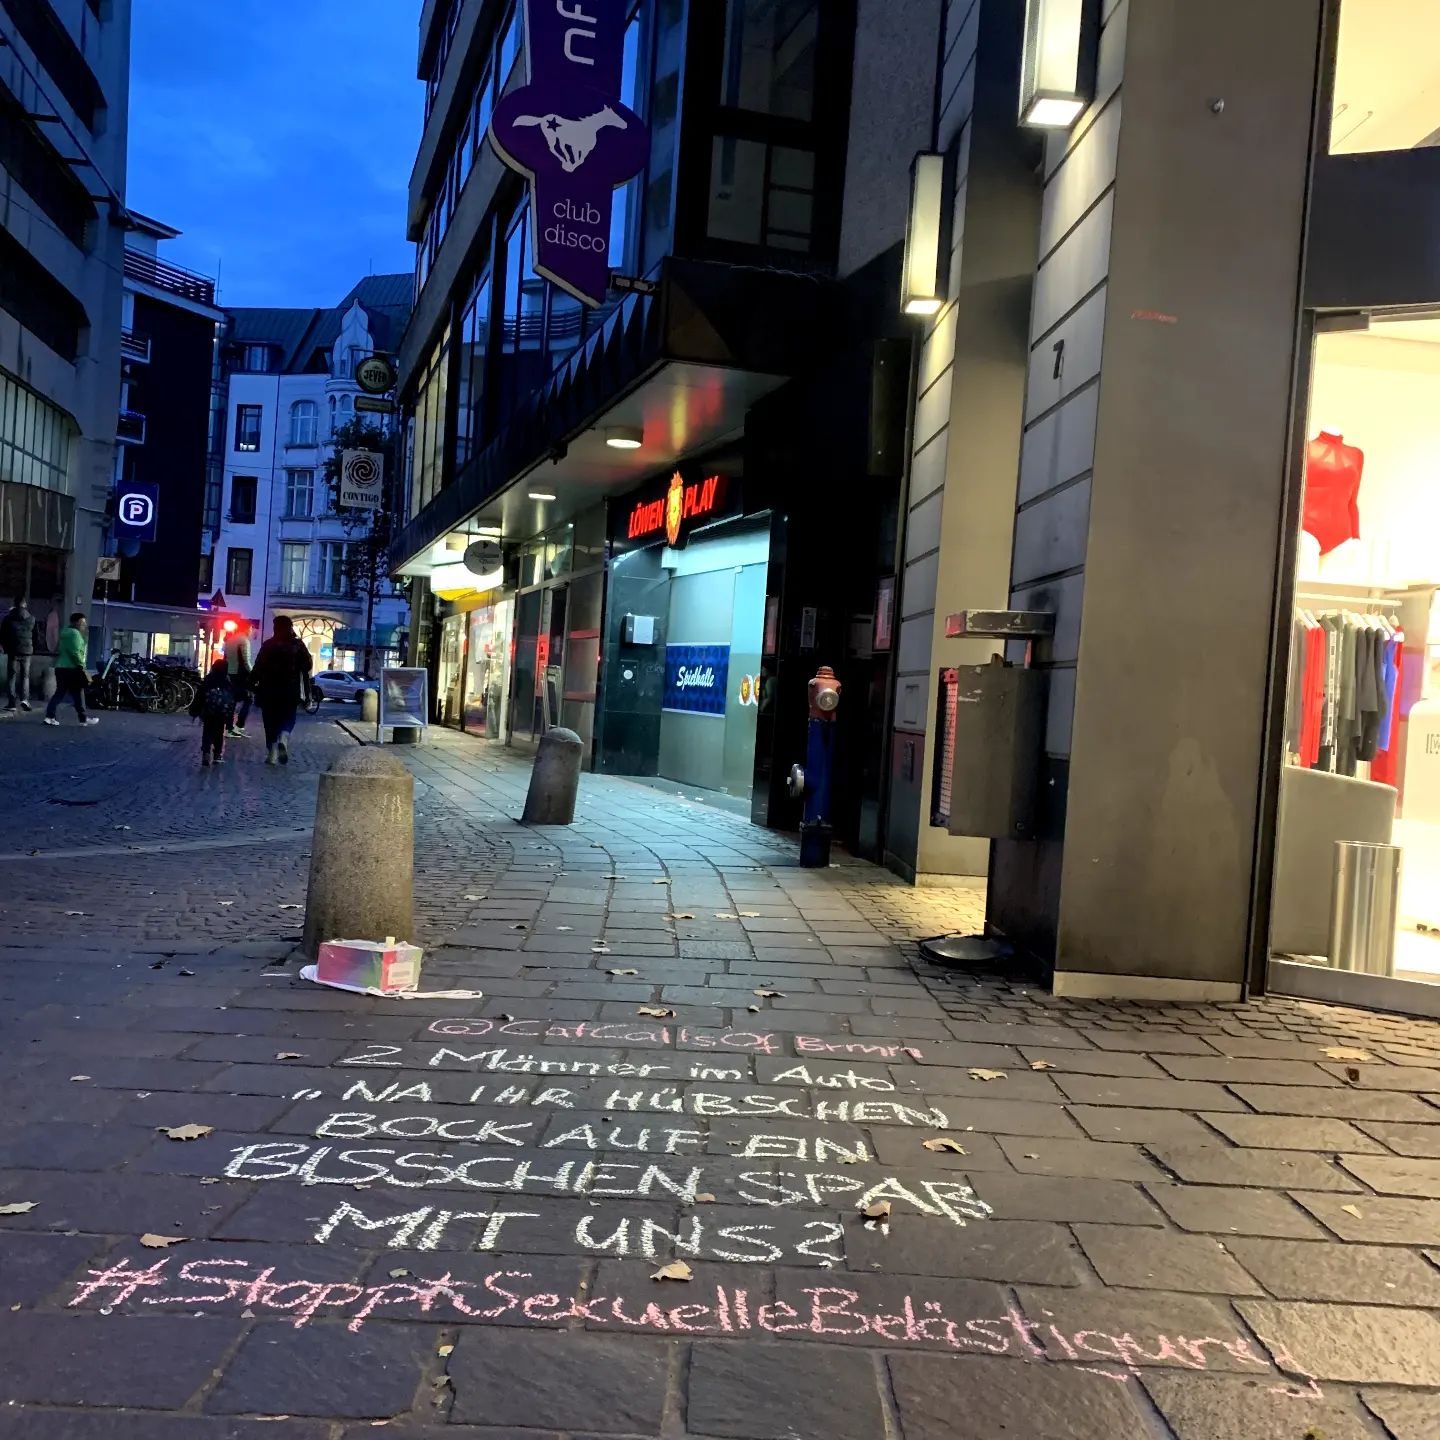 club
disco
JEVER
CONTIGO
P
LÖWEN PLAY
Spielhalle
7
@CatCallsOf Brmn
2 Männer im Auto
„NA IHR HÜBSCHEN
BOCK AUF EIN
BISSCHEN SPAß
MIT UNS?"
#StopptSexuelleBelästigung